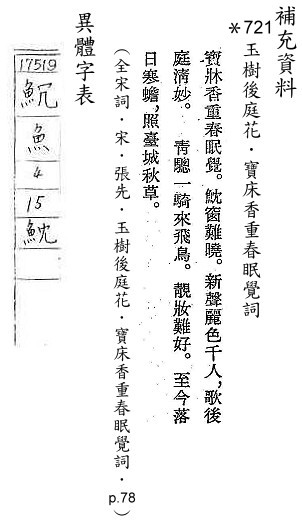 補充資料
*721
玉樹後庭花．寶床香重春眠覺詞
寶牀香重春眠覺。魫窗難曉。新聲麗色千人，歌後
庭清妙。　青驄一騎來飛鳥。靚妝難好。至今落
日寒蟾，照臺城秋草。
（全宋詞．宋．張先．玉樹後庭花．寶床香重春眠覺詞．p.78）
異體字表
17519
魚
4
15
魫